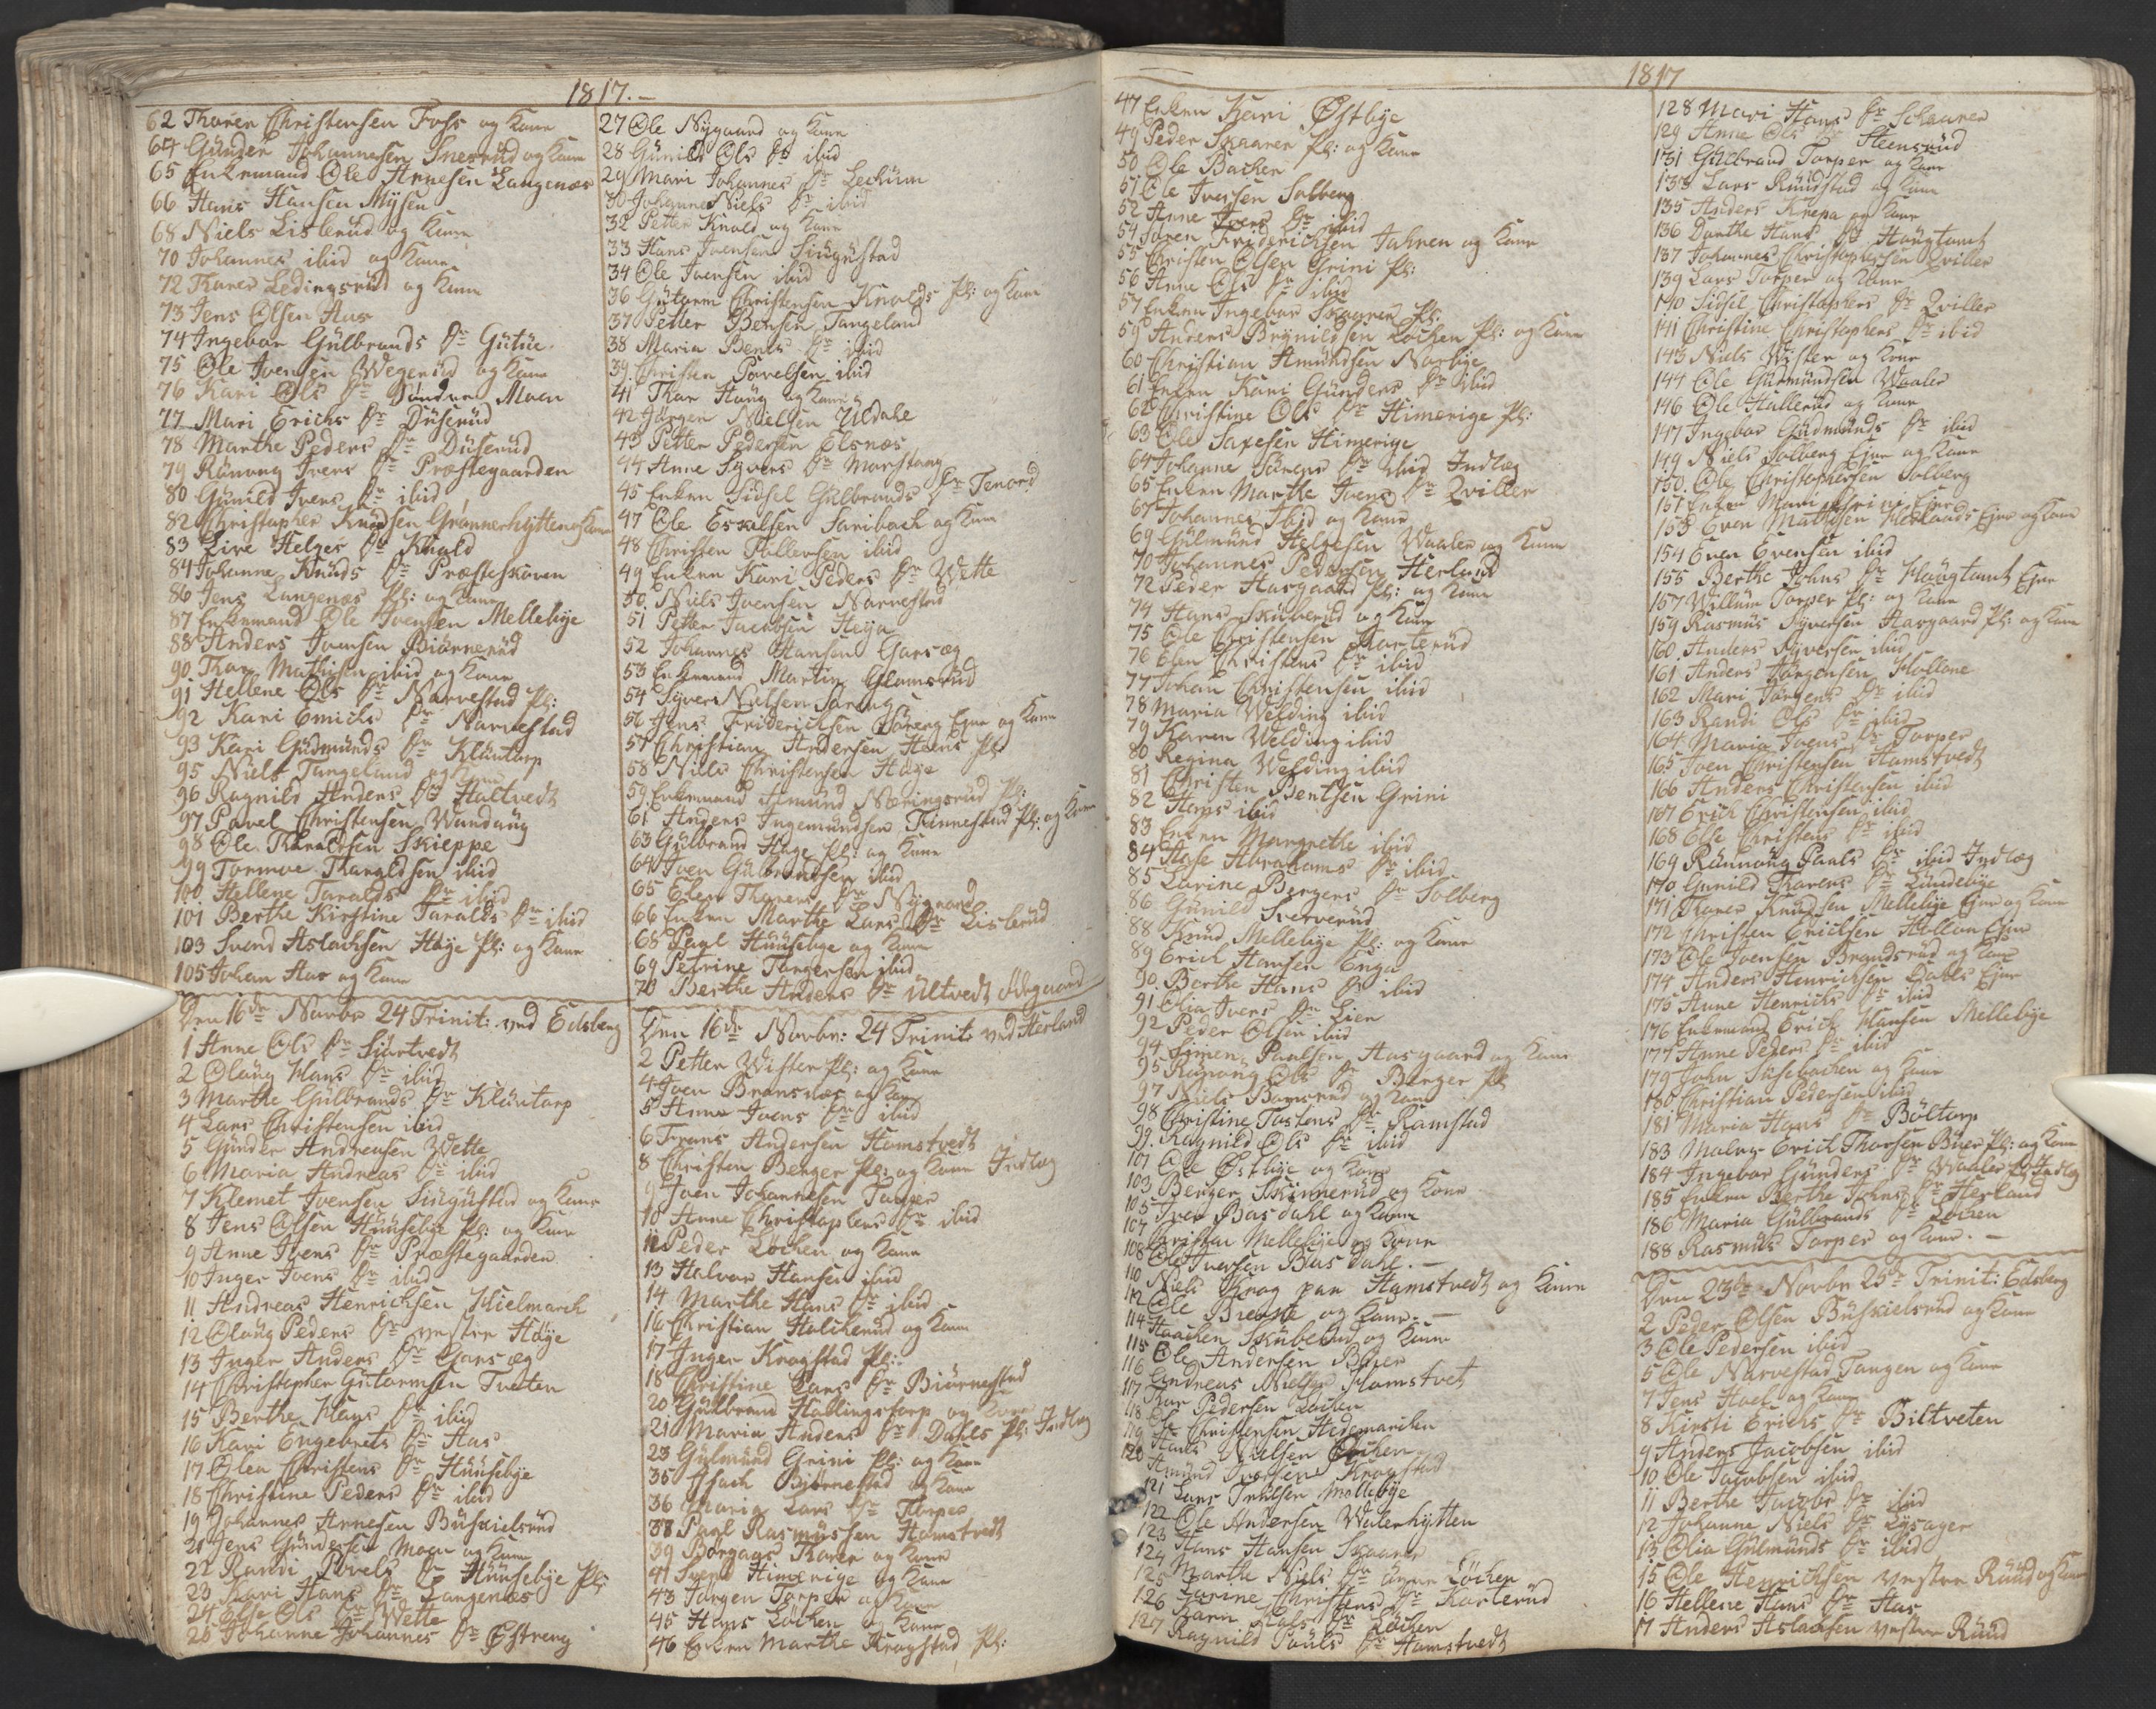 1817.-
62 Thorer Christensen Foss og Kone
64 Gunder Johannesen Snerud og Kone
65 Enkemand Ole Arnesen Langenæs
66 Hans Hansen Mysen
68 Niels Lislerud og Kone
70 Johannes ibid og Kone
72 Thorer Ledingsrud og Kone
73 Jens Olsen Aas
74 Ingebor Gülbrands Dr Gütüe
75 Ole Joensen Wegerud og Kone
76 Kari Ols Dr Søndre Moen
77 Mari Erichs Dr Düserüd
78 Marthe Peders Dr Düserüd
79 Rønnoug Ivers Dr Præstegaarden
80 Günild Ivers Dr ibid
82 Christopher Knudsen Grønnerhytten og Kone
83 Live Helges Dr Knold
84 Johanne Knüds Dr Præsteskoven
86 Jens Langenæs Pl: og Kone
87 Enkemand Ole Joensen Mellebye
88 Anders Joensen Biørnerüd
90 Thor Mathisen ibid og Kone
91 Hellene Ols Dr Narvestad Pl:
92 Kari Emichs Dr Narvestad
93 Kari Gudmunds Dr Kluntorp
95 Niels Tangeland og Kone
96 Ragnild Anders Dr Haltvedt
97 Povel Christensen Wandüng
98 Ole Tharaldsen Skieppe
99 Tormoe Tharaldsen ibid
100 Hellene Taralds Dr ibid
101 Berthe Kirstine Taralds Dr ibid
103 Svend Aslachsen Høye Pl: og Kone
105 Johan Aas og Kone
Den 16de Novbr 24 Trinit: ved Edsberg
1 Anne Ols Dr Siørtvedt
2 Oloug Hans Dr ibid
3 Marthe Gülbrands Dr Kluntorp
4 Lars Christensen ibid
5 Günder Andreasen Wette
6 Maria Andreas Dr ibid
7 Klemet Joensen Singüstad og Kone
8 Jens Olsen Huusebye Pl: og Kone
9 Anne Ivers Dr Præstegaarden
10 Inger Joens Dr ibid
11 Andreas Henrichsen Hielmarck
12 Oloug Peders Dr vestre Høye
13 Inger Anders Dr Gars æg
14 Christopher Gutormsen Tveten
15 Berthe Hans Dr ibid
16 Kari Engebrets Dr Aas
17 Olea Christens Dr Huusebye
18 Christine Peders Dr ibid
19 Johannes Arnesen Buskielsrud
21 Jens Gundersen Moen og Kone
22 Randi Povels Dr Huusebye Pl:
23 Kari Hans Dr Langenæs
24 Else Ols Dr Wette
25 Johanne Johannes Dr Østreng
27 Ole Nygaard og Kone
28 Günild Ols Dr ibid
29 Mari Johannes Dr Leckum
30 Johanne Niels Dr ibid
32 Petter Knold og Kone
33 Hans Joensen Singüstad
34 Ole Joensen ibid
36 Gutorm Christensen Knolds Pl: og Kone
37 Petter Bensen Tangeland
38 Maria Bents Dr ibid
39 Christen Povelsen ibid
41 Thor Haug og Kone
42 Jørgen Nielsen Uldahl
43 Petter Pedersen Elsnæs
44 Anne Syvers Dr Morstang
45 Enken Sidsel Gulbrands Dr Tenord
47 Ole Eskelsen Saribach og Kone
48 Christen Tollevsen ibid
49 Enken Kari Peders Dr Wette
50 Niels Joensen Narvestad
51 Petter Jacobsen Heya
52 Johannes Hansen Gars æg
53 Enkemand Martin Glomsrud
54 Syver Nielsen Søreng
56 Jens Friderichsen Søreng Ejer og Kone
57 Christian Andersen Hoens Pl:
58 Niels Christensen Høye
59 Enkemand Amund Næringsrud Pl:
61 Anders Ingemundsen Finnestad Pl: og Kone
63 Gulbrand Høye Pl: og Kone
64 Iven Gulbrandsen ibid
65 Elen Thorers Dr Nygaard
66 Enken Marthe Lars Dr Lislerud
68 Paul Huusebye og Kone
69 Petrine Torgersen ibid
70 Berthe Anders Dr Ultvedt Ødegaard
Den 16de Novbr: 24 Trinit: ved Herland
2 Petter Wister Pl: og Kone
4 Joen Bransnæs og Kone
5 Anne Joens Dr ibid
6 Frans Andersen Hamstvedt
8 Christen Berger Pl: og Kone Indlæg
9 Joen Johannesen Tanger
10 Anne Christophers Dr ibid
12 Peder Løchen og Kone
13 Halvor Hansen ibid
14 Marthe Hans Dr ibid
16 Christian Holckerud og Kone
17 Inger Kragstad Pl:
18 Christine Lars Dr Biørnestad
20 Gulbrand Hallingstorp og Kone
21 Maria Anders Dr Dahls Pl: Indlæg
23 Gülmünd Grini Pl: og Kone
35 Isach Biørnestad og Kone
36 Maria Lars Dr Torper
38 Paul Rasmussen Hamstvedt
39 Borgaas Thorer og Kone
41 Svend Himerige og Kone
43 Jørgen Torper og Kone
45 Hans Løchen og Kone
46 Enken Marthe Kragstad Pl:
1817
47 Enken Kari Østbye
49 Peder Skaaren Pl: og Kone
50 Ole Bachen
51 Ole Iversen Solberg
52 Anne Ivers Dr ibid
54 Søren Friderichsen Jahren og Kone
55 Christen Olsen Grini Pl:
56 Anne Ols Dr ibid
57 Enken Ingebor Skaaren Pl:
59 Anders Brynildsen Løchen Pl: og Kone
60 Christian Amundsen Norbye
61 Enken Kari Günders Dr ibid
62 Christine Ols Dr Himerige Pl:
63 Ole Saxesen Himerige
64 Johanne Sørens Dr ibid Indlæg
65 Enken Marthe Joens Dr Zviller
67 Johannes Ibid og Kone
69 Gülmünd Helgesen Waaler og Kone
70 Johannes Pedersen Herland
72 Peder Hasgaard Pl: og Kone
74 Hans Skuberud og Kone
75 Ole Christensen Korterud
76 Elen Christens Dr ibid
77 Johan Christensen ibid
78 Maria Welding ibid
79 Karen Welding ibid
80 Regina Welding ibid
81 Christen Bentsen Grini
82 Hans ibid
83 Enken Margrethe ibid
84 Aase Abrahams Dr ibid
85 Larine Bergers Dr Solberg
86 Gunild Sververud
88 Knud Mellebye Pl: og Kone
89 Erich Hansen Enga
90 Berthe Hans Dr ibid
91 Olia Ivers Dr Lien
92 Peder Olsen ibid
94 Simen Paulsen Aasgaard og Kone
95 Rønnoug Ols Dr Berger Pl
97 Niels Bomsrud og Kone
98 Christine Tostens Dr Ramstad
99 Ragnild Ols Dr ibid
101 Ole Østbye og Kone
103 Berger Skinnerud og Kone
105 Iver Basdahl og Kone
107 Christen Mellebye og Kone
108 Ole Iversen Bas Dahl.-
110 Niels Krog paa Hamstvedt og Kone
112 Ole Brenne og Kone.-
114 Haachen Skuberud og Kone
115 Ole Andersen Buer
116 Andreas Nielsen Hamstvet
117 Thor Pedersen Løchen
118 Ole Christensen Hedemarchen
119 Hans Nielsen Løchen
120 Amund Iversen Kragstad
121 Lars Truelsen Mellebye
122 Ole Andersen Walerhytten
123 Hans Hansen Skaaren
124 Marthe Niels Dr øvre Løchen
125 Karine Christens Dr Korterud
126 Karn Dr Løchen
127 Ragnild Pouls Dr Hamstvedt
1817
128 Mari Hans Dr Schaaren
129 Anne Ols Dr Steensrud
131 Gulbrand Torper og Kone
133 Lars Rundstad og Kone
135 Anders Knepa og Kone
136 Dorthe Hans Dr Haugtomt
137 Johannes Christophersen Zviller
139 Lars Torper og Kone
140 Sidsel Christophers Dr Zviller
141 Christine Christophers Dr ibid
143 Niels Wister og Kone
144 Ole Gudmundsen Waaler
146 Ole Hallerud og Kone
147 Ingebor Gudmunds Dr ibid
149 Niels Solberg Ejer og Kone
150 Ole Christophersen Solberg
151 Enken Mari Grini Ejer
153 Even Mathisen Herlands Ejer og Kone
154 Even Evensen ibid
155 Berthe Johns Dr Haugtomt Ejer
157 Willum Torper Pl: og Kone
159 Rasmus Syversen Hasgaard Pl: og Kone
160 Anders Syversen ibid
161 Anders Jørgensen Hollone
162 Mari Jørgens Dr ibid
163 Randi Ols Dr ibid
164 Maria Joens Dr Torper
165 Joen Christensen Hamstvedt
166 Anders Christensen ibid
167 Erich Christensen ibid
168 Else Christens Dr ibid
169 Rønnoug Paals Dr ibid Indlæg
170 Gunild Thorers Dr Lundebye
171 Thorer Knudsen Mellebye Ejer og Kone
172 Christen Erichsen Hollon Ejer
173 Ole Joensen Brandsrud og Kone
174 Anders Henrichsen Dahls Ejer
175 Anne Henrichs Dr ibid
176 Enkemand Erich Hansen Mellebye
177 Anne Peders Dr ibid
179 John Susebachen og Kone
180 Christian Pedersen ibid
181 Maria Hans Dr Böltorp
183 Maler Erich Thorsen Buer Pl: og Kone
184 Ingebor Gunders Dr Waaler Indlæg
185 Enken Berthe Johns Dr Herland
186 Maria Gulbrands Dr Løchen
188 Rasmus Torper og Kone.-
Den 23de Novbr 25de Trinit: Edsberg
2 Peder Olsen Buskielsrud og Kone
3 Ole Pedersen ibid
5 Ole Narvestad Tangen og Kone
7 Jens Hoel og Kone
8 Kirsti Erichs Dr Biltveten
9 Anders Jacobsen ibid
10 Ole Jacobsen ibid
11 Berthe Jacobs Dr ibid
12 Johanne Niels Dr Lysager
13 Olia Gulmunds Dr ibid
15 Ole Henrichsen vestre Ruud og Kone
16 Hellene Hans Dr Aas
17 Anders Aslaksen vestre Ruud